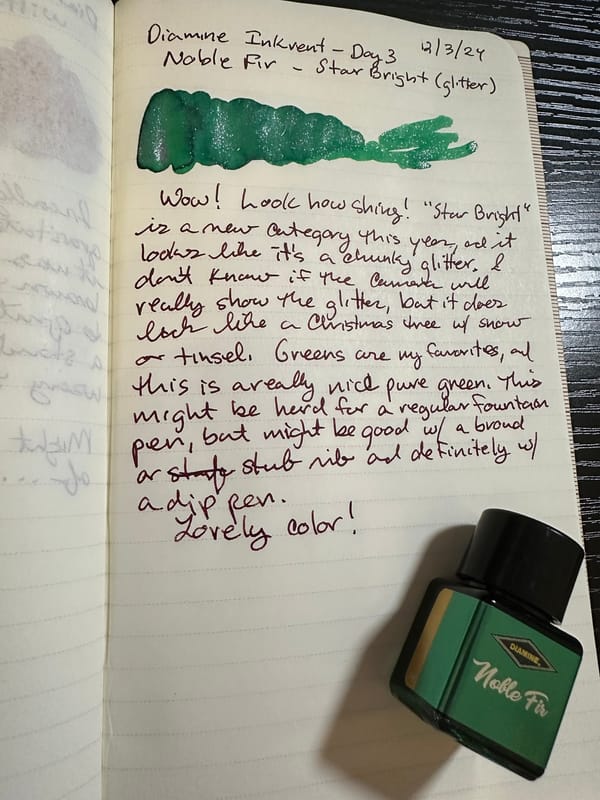 Diamine Inkvent - Day 3 12/3/24
Noble Fir - Star Bright (glitter)
Wow! Look how shiny! "Star Bright"
is a new category this year, and it
looks like it's a chunky glitter. I
don't know if the camera will
really show the glitter, but it does
look like a Christmas tree w/ snow
or tinsel. Greens are my favorites, and
this is a really nice pure green. This
might be hard for a regular fountain
pen, but might be good w/ a broad
or stub nib and definitely w/
a dip pen.
Lovely color!
DIAMINE
Noble Fir